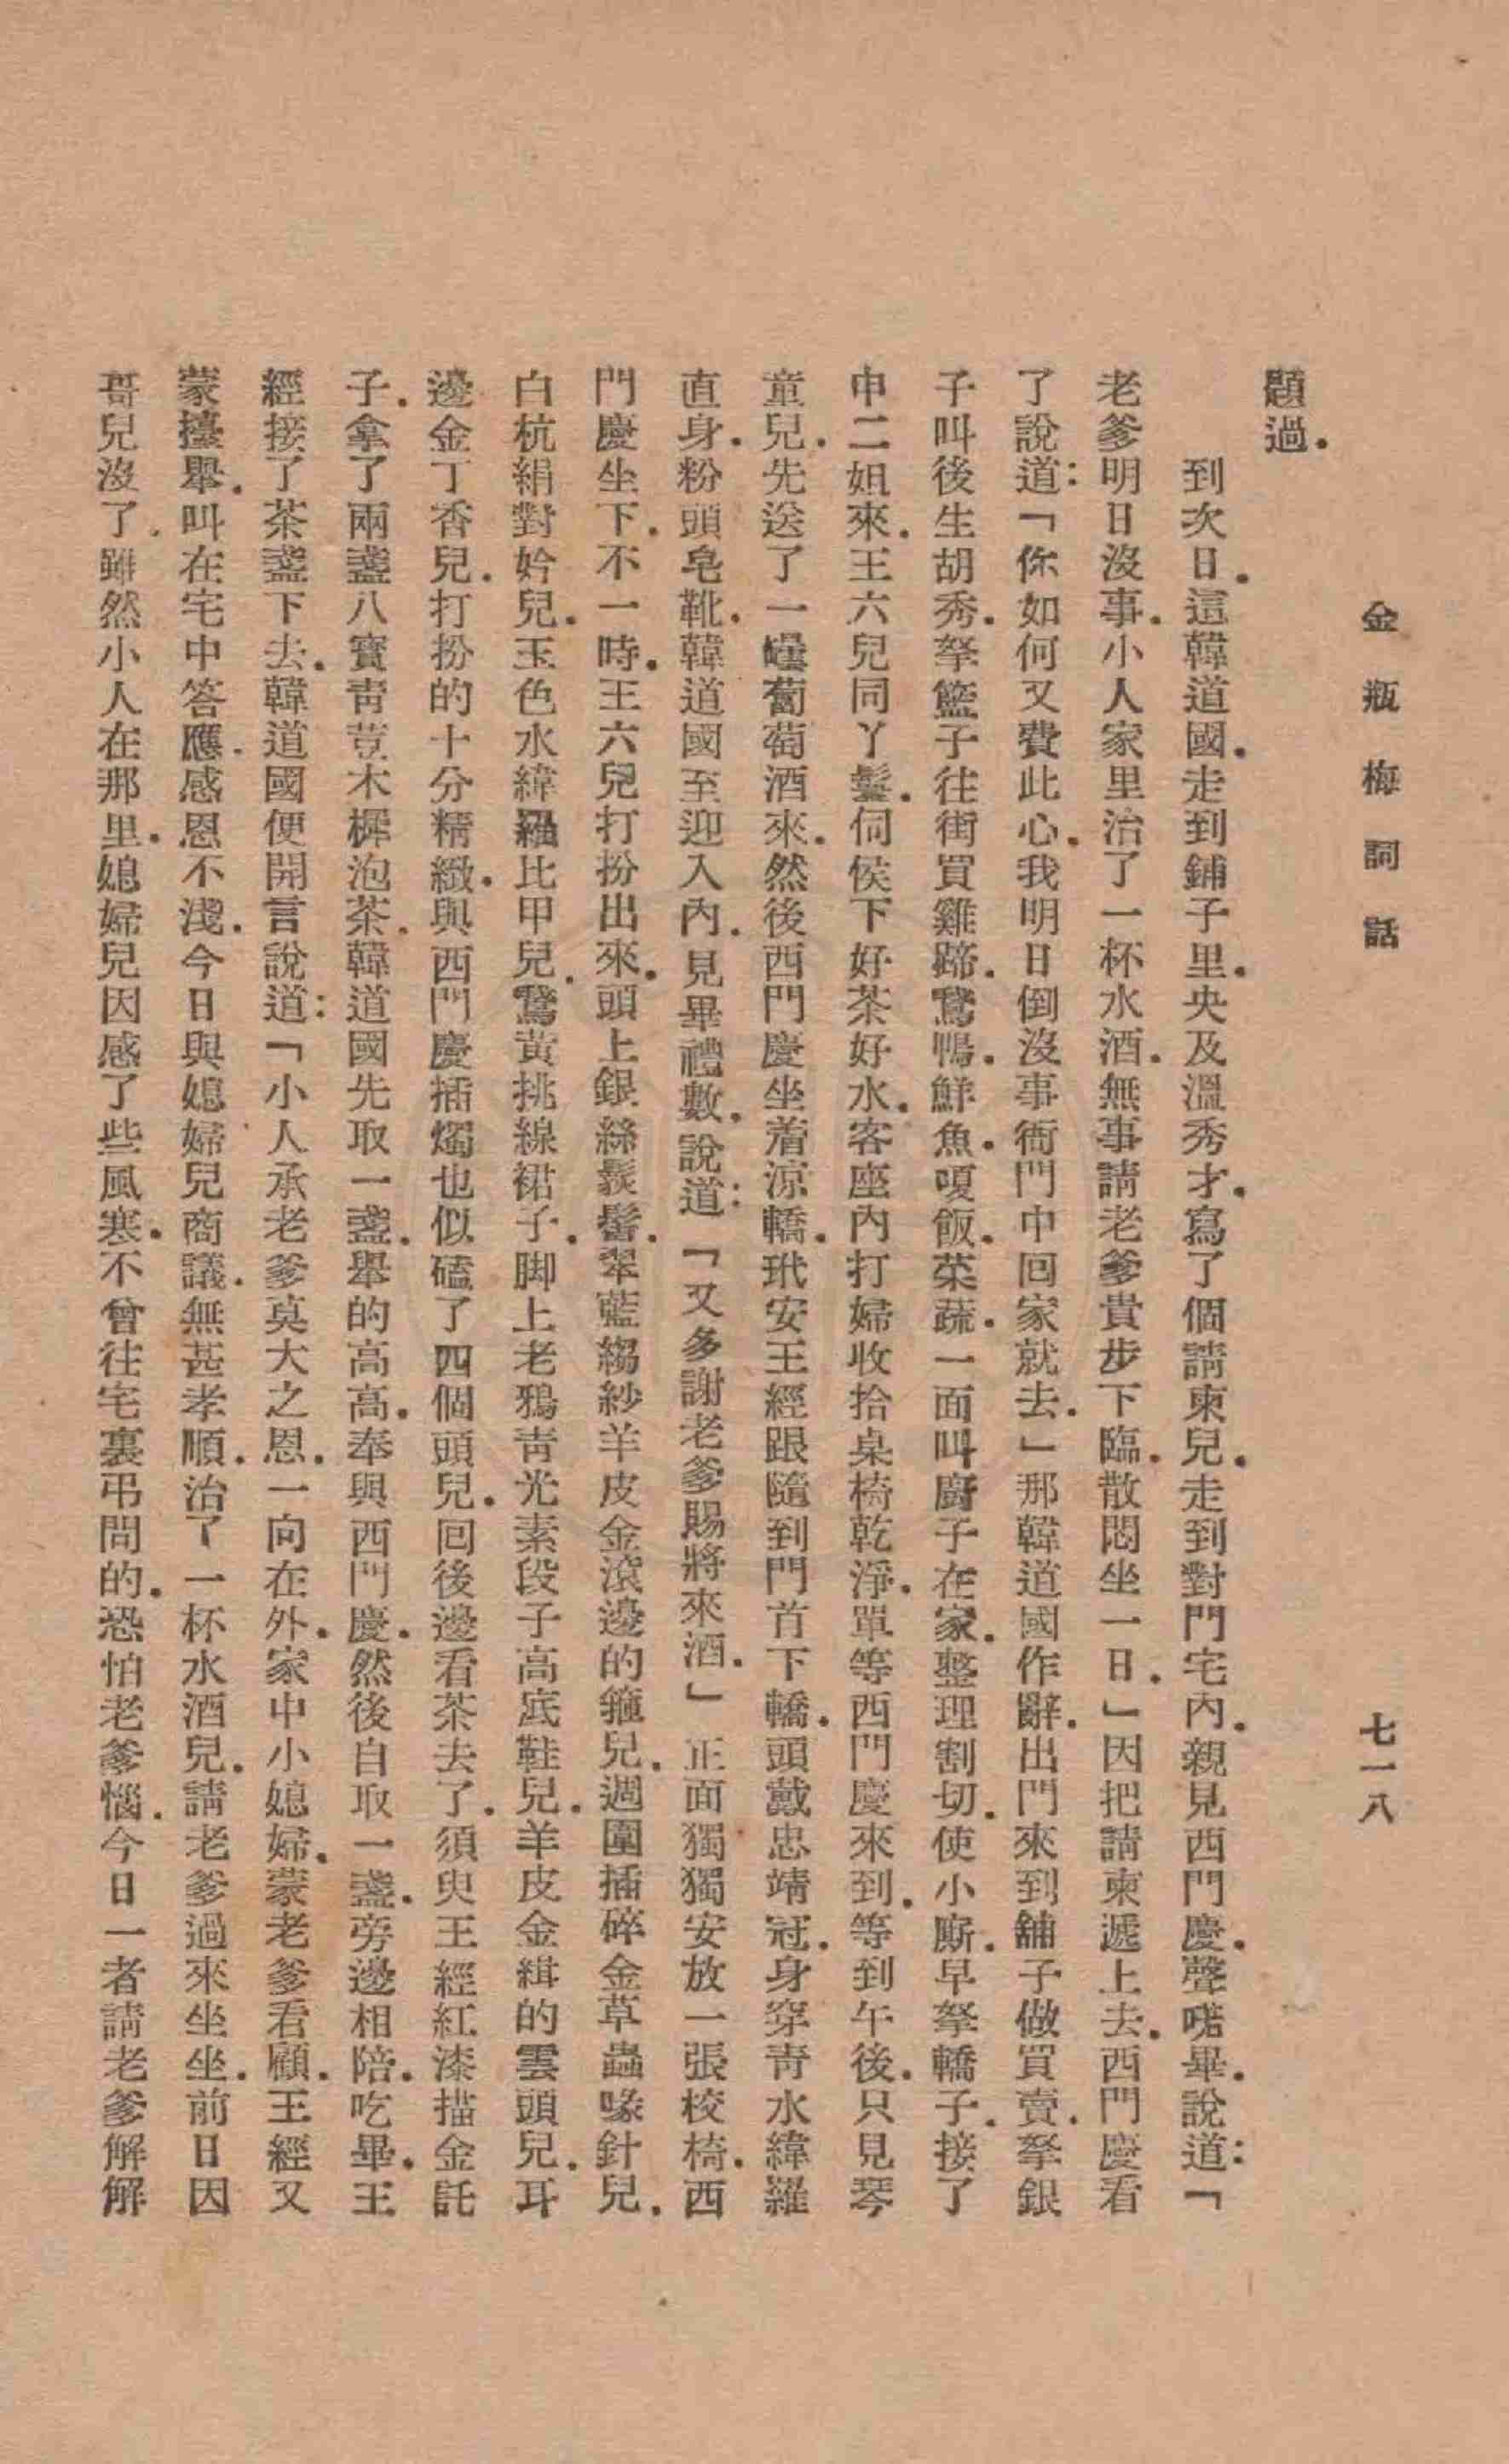 金瓶梅詞話
七一八
題過．
到次日．這韓道國．走到鋪子里．央及溫秀才．寫了個請柬兒．走到對門宅內．親見西門慶．聲喏畢．說道：「
老爹明日沒事．小人家里治了一杯水酒．無事請老爹貴步下臨．散悶坐一日．」因把請柬遞上去．西門慶看
了說道：「你如何又費此心．我明日倒沒事衙門中回家就去．」那韓道國作辭．出門來到舖子做買賣．拏銀
子叫後生胡秀．拏籃子往街買雞蹄．鵞鴨．鮮魚．嗄飯．菜蔬．一面叫廚子在家．整理割切．使小廝．早拏轎子．接了
申二姐來．王六兒同丫鬟．伺侯下好茶好水．客座內打婦收拾桌椅乾淨．單等西門慶來到．等到午後．只見琴
童兒．先送了一罎葡萄酒來．然後西門慶坐着涼轎．玳安王經跟隨到門首下轎．頭戴忠靖冠．身穿青水緯羅
直身．粉頭皂靴．韓道國至迎入內．見畢禮數．說道：「又多謝老爹賜將來酒．」正面獨獨安放一張校椅．西
門慶坐下．不一時．王六兒打扮出來．頭上銀絲䯼髻．翠藍縐紗羊皮金滾邊的箍兒．週圍插碎金草蟲啄針兒．
白杭絹對衿兒．玉色水緯羅比甲兒．鵞黃挑線裙子．脚上老鴉青光素段子高底鞋兒．羊皮金緝的雲頭兒．耳
邊金丁香兒．打扮的十分精緻．與西門慶插燭也似磕了四個頭兒．回後邊看茶去了．須臾王經紅漆描金託
子．拿了兩盞八寳青荳木樨泡茶．韓道國先取一盞．舉的高高．奉與西門慶．然後自取一盞．旁邊相陪．吃畢．王
經接了茶盞下去．韓道國便開言說道：「小人承老爹莫大之恩．一向在外．家中小媳婦．蒙老爹看顧．王經又
蒙擡舉．叫在宅中答應．感恩不淺．今日與媳婦兒商議．無甚孝順．治了一杯水酒兒．請老爹過來坐坐．前日因
哥兒沒了．雖然小人在那里．媳婦兒因感了些風寒．不曾往宅裏弔問的．恐怕老爹惱．今日一者請老爹解解